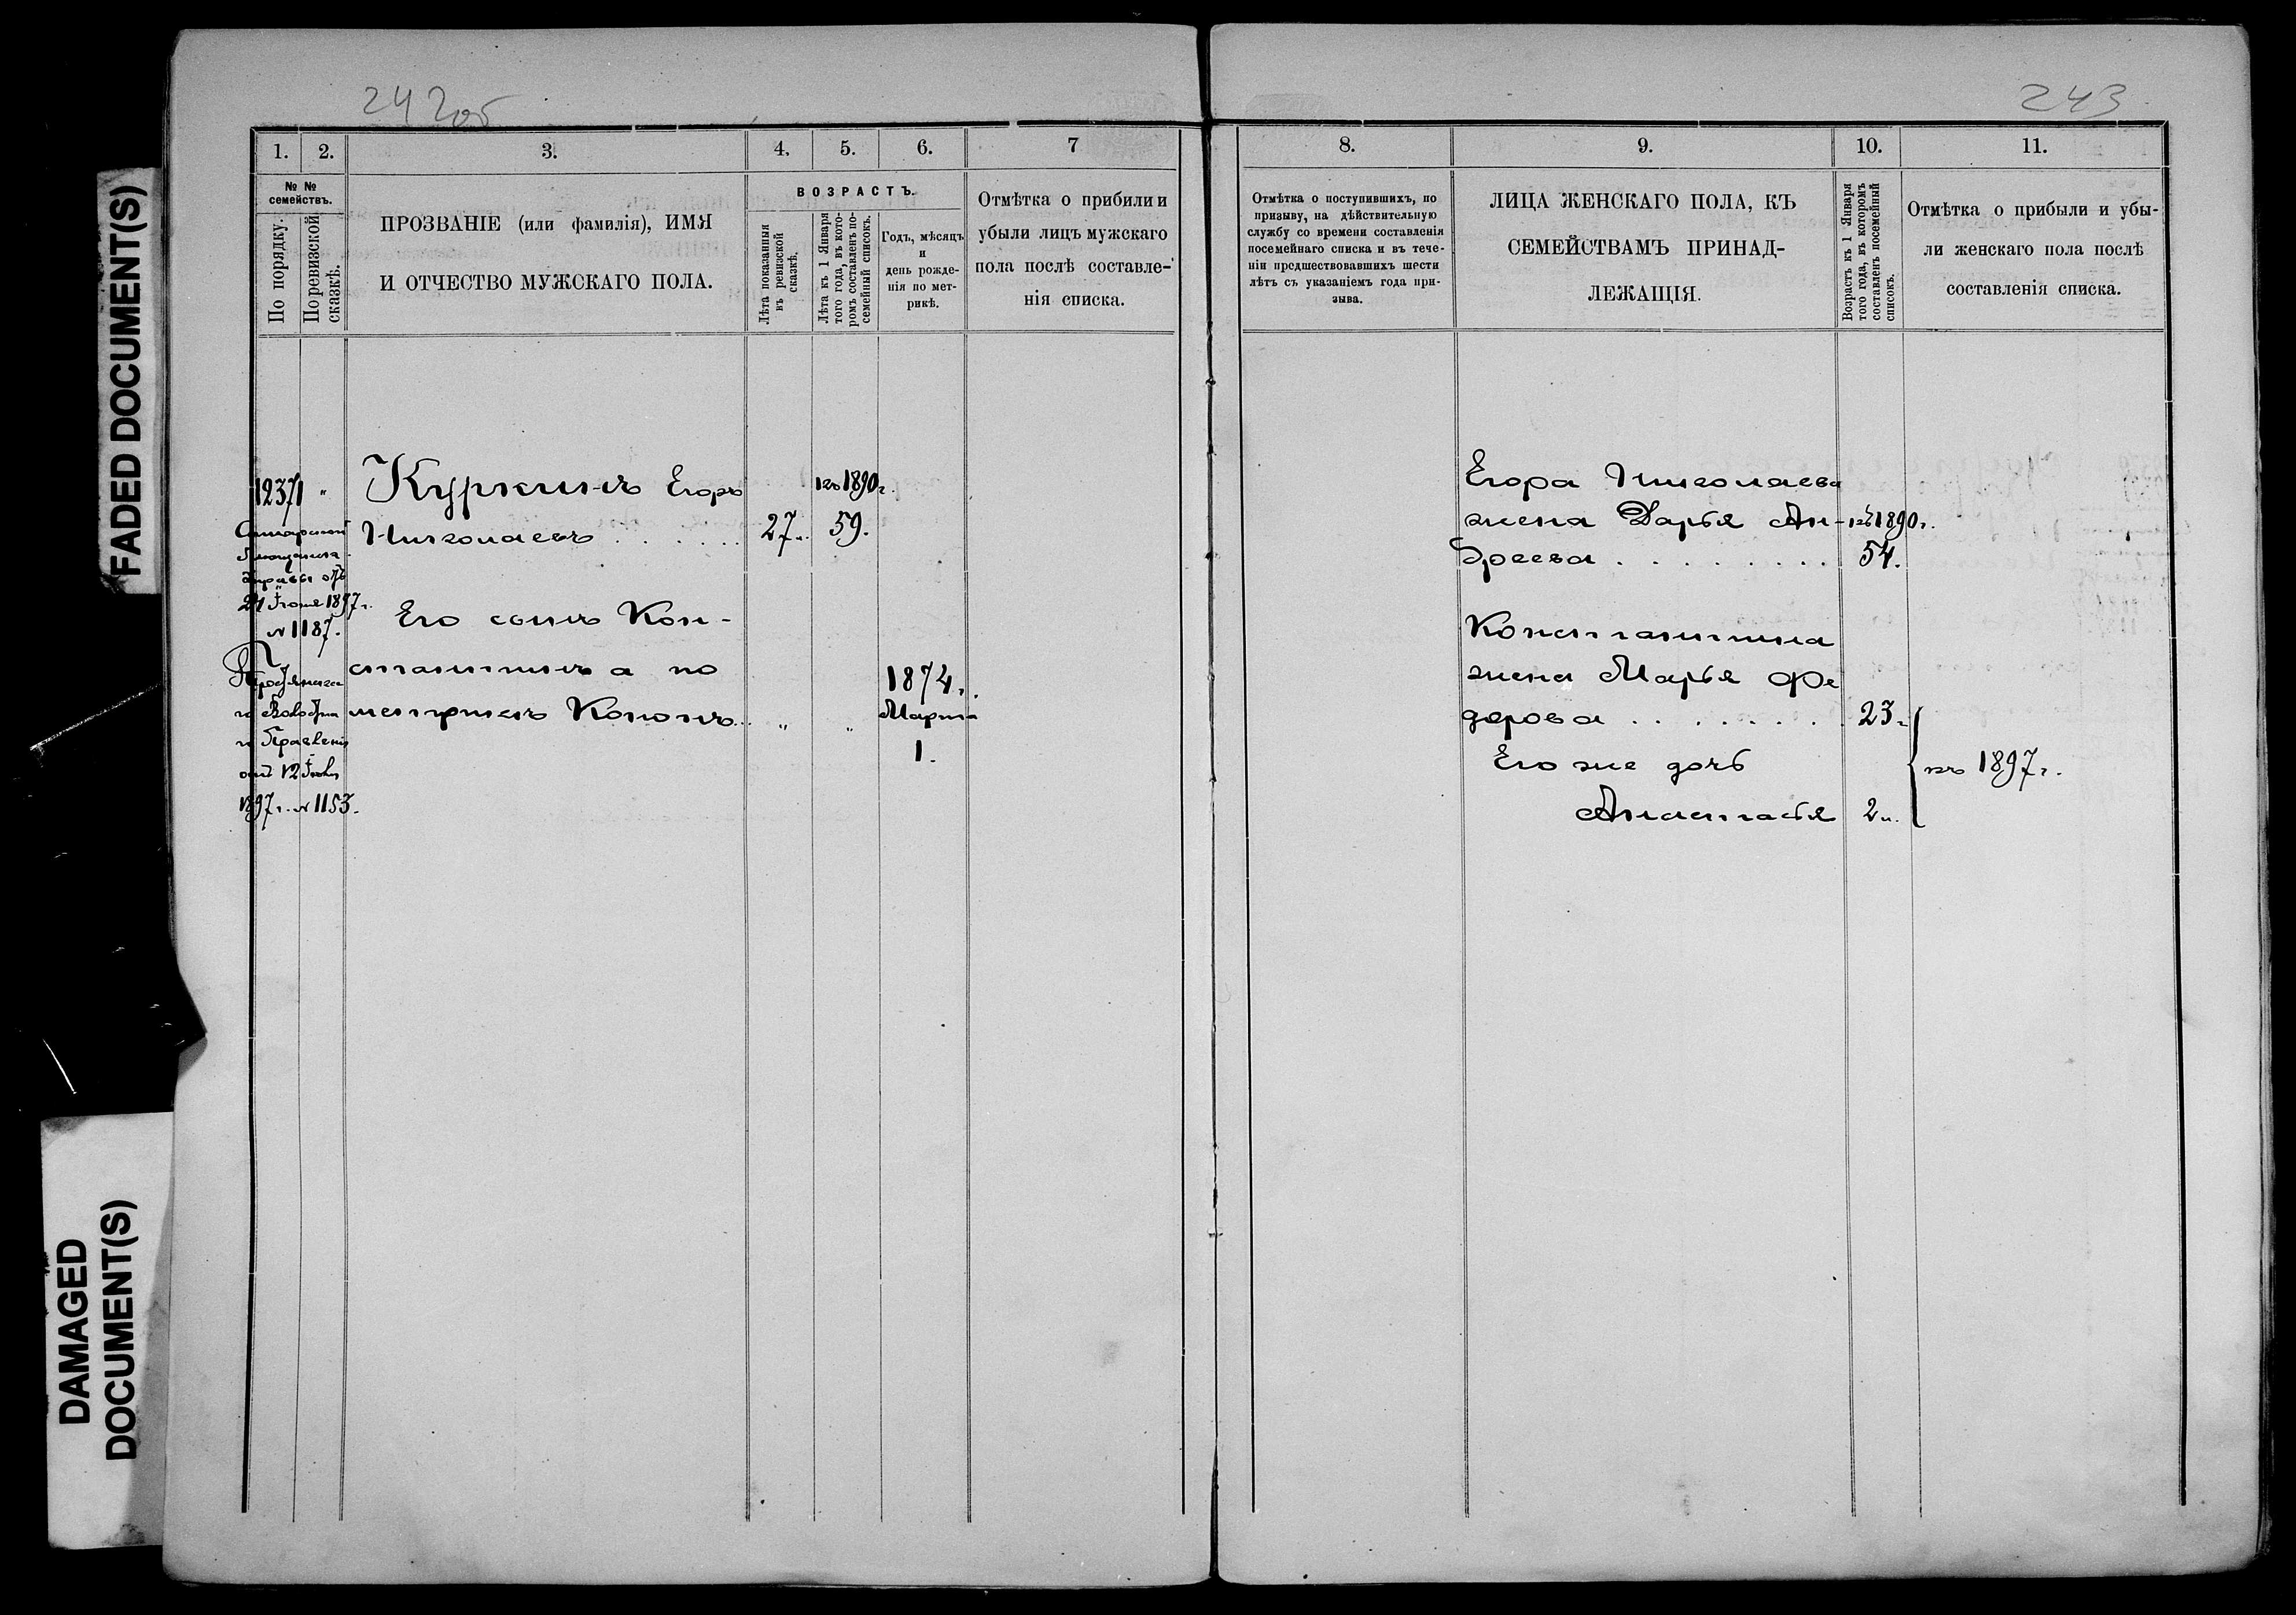 FADED DOCUMENT(S)
DAMAGED
DOCUMENT(S)
242об
1. 2. 3. 4. 5. 6. 7
№ №
семействъ.
По порядку.
По ревизской
сказкѣ.
ПРОЗВАНІЕ (или фамилія), ИМЯ
И ОТЧЕСТВО МУЖСКАГО ПОЛА.
ВОЗРАСТЪ.
Лѣта показанныя
въ ревизской
сказкѣ.
Лѣта къ 1 Января
того года, въ кото-
ромъ составленъ по-
семейный списокъ.
Годъ, мѣсяцъ
и
день рожде-
нія по мет-
рикѣ.
Отмѣтка о прибили и
убыли лицъ мужскаго
пола послѣ составле-
нія списка.
12371 " Куркинъ Егоръ къ 1890 г.
Николаевъ . . . . . . 27. 59.
Самарской
управы отъ
21 Іюля 1897 г.
№ 1187.
Его сынъ Кон-
стантинъ а по
метрикѣ Кононъ.. " "
1874 г.
Марта
1.
го Правленія
отъ 12 Іюля
1897 г. № 1153.
243
8. 9. 10. 11.
Отмѣтка о поступившихъ, по
призыву, на дѣйствительную
службу со времени составленія
посемейнаго списка и въ тече-
ніи предшествовавшихъ шести
лѣтъ съ указаніемъ года при-
зыва.
ЛИЦА ЖЕНСКАГО ПОЛА, КЪ
СЕМЕЙСТВАМЪ ПРИНАД-
ЛЕЖАЩІЯ.
Возрастъ къ 1 Января
того года, въ которомъ
составленъ посемейный
списокъ.
Отмѣтка о прибыли и убы-
ли женскаго пола послѣ
составленія списка.
Егора Николаева
жена Дарья Ан- къ 1890 г.
дреева . . . . . . . . . 54.
Константина
жена Марья Фе
дорова . . . . . . . . . 23.
Его же дочь
Анастасья 2.
къ 1897 г.